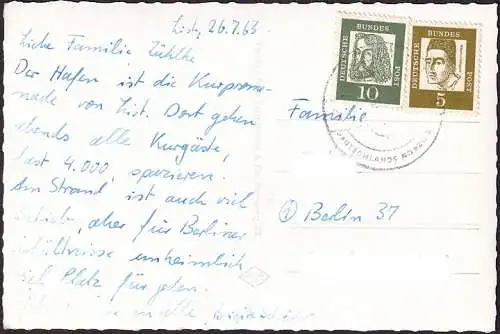 List, 26.7.63
Liebe Familie Zühlke
Der Hafen ist die Kurprome-
nade von List. Dort gehen
abends alle Kurgäste,
fast 4.000, spazieren.
Am Strand ist auch viel
aber für Berliner
unheimlich
Platz für jeden.
alle,
DEUTSCHE BUNDES POST
10
DEUTSCHE BUNDES POST
5
DEUTSCHLANDS
Familie
Berlin 37